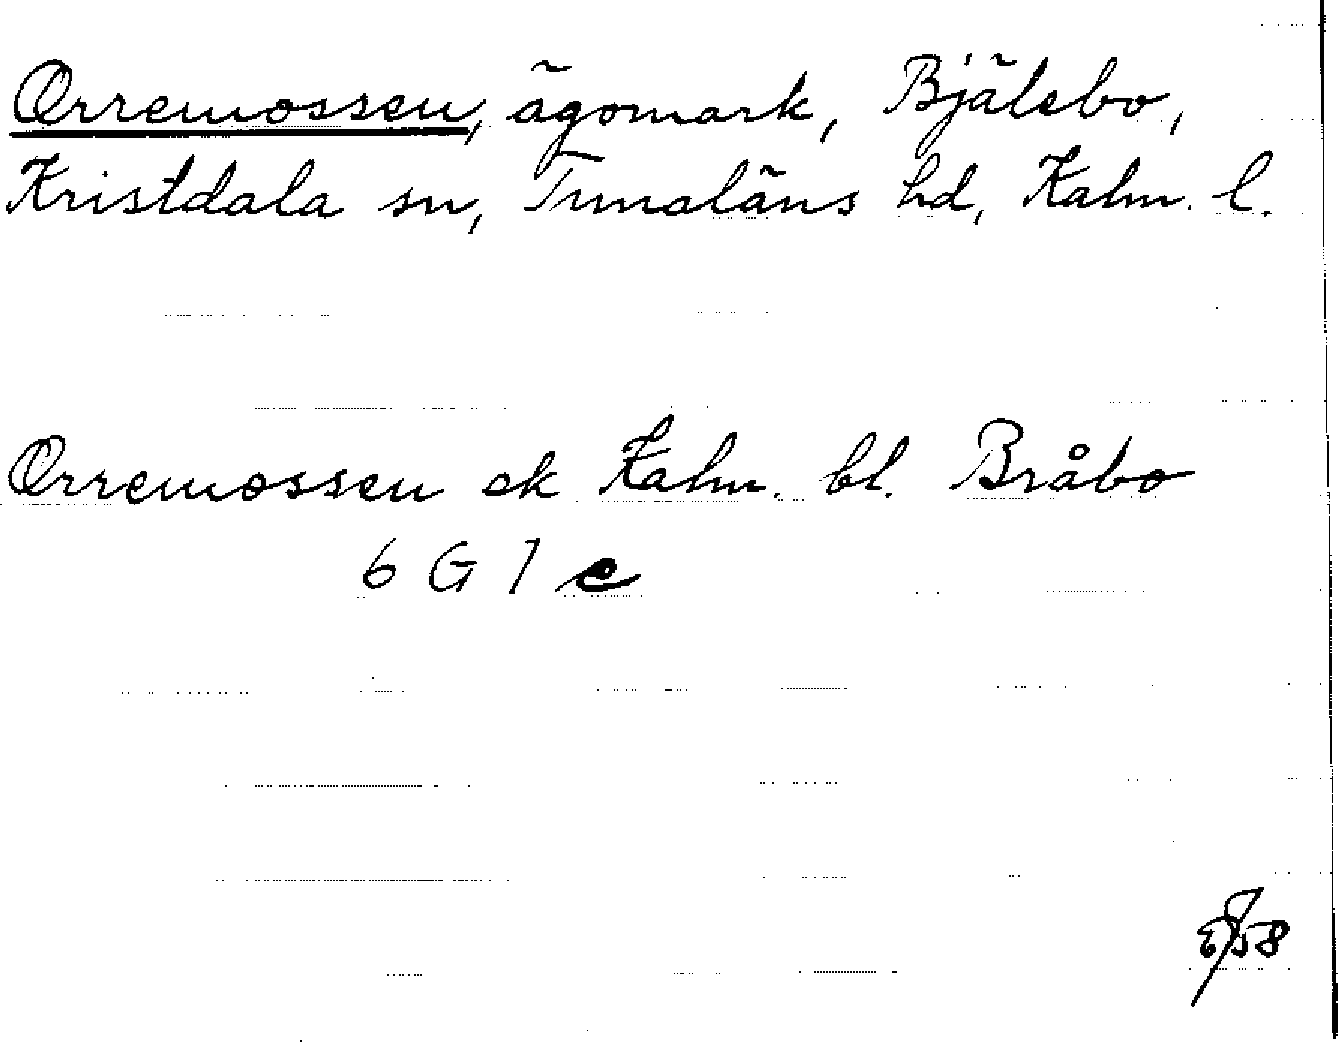 Orremossen, ägomark, Bjälebo,
Kristdala sn, Tunaläns hd, Kalm. l.
Orremossen ek Kalm. bl. Bråbo
6 G 1 c